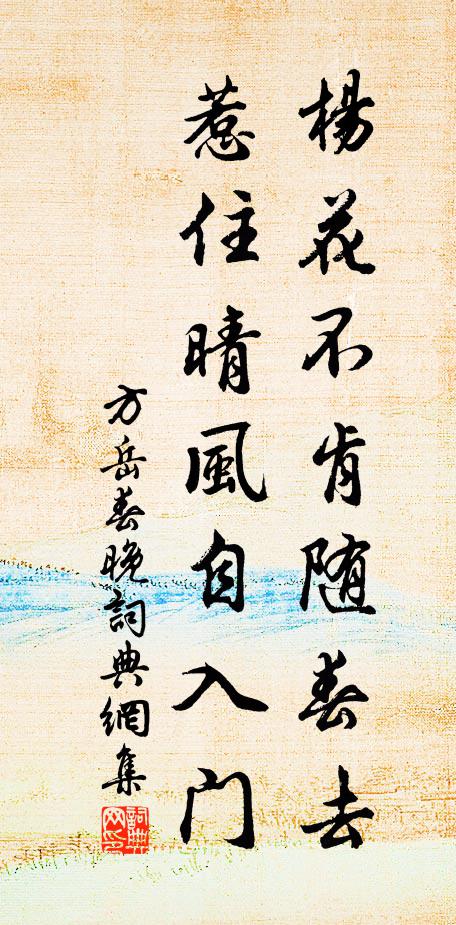 楊花不肯随春去
惹住晴風自入门
方岳春晚詞典網集
詞典网印